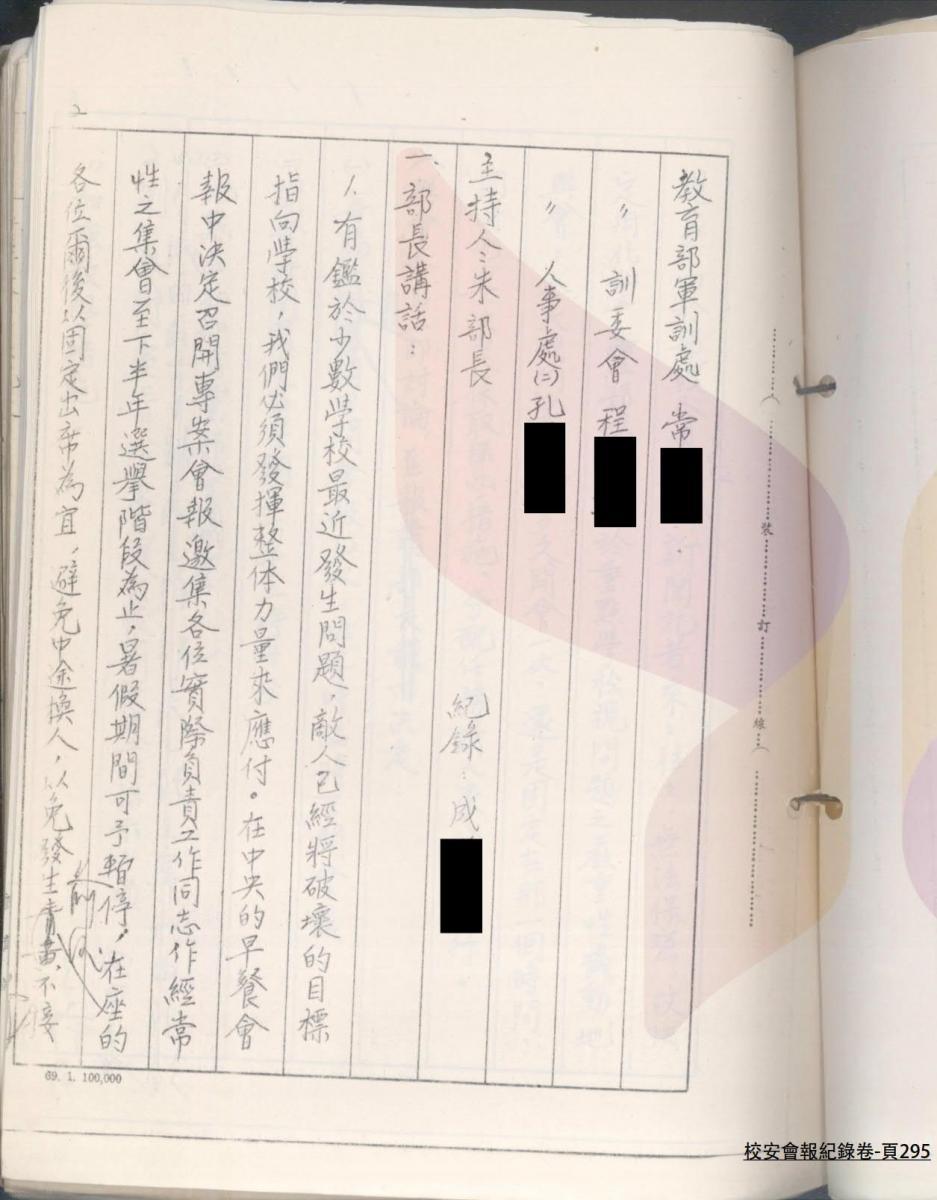 教育部軍訓處 常
〃 訓委會 程
〃 人事處(二)孔
主持人：朱部長 紀錄：成
一、部長講話：
1. 有鑑於少數學校最近發生問題，敵人已經將破壞的目標
指向學校，我們必須發揮整体力量來應付。在中央的早餐會
報中決定召開專案會報邀集各位實際負責工作同志作經常
性之集會至下半年選舉階段為止，暑假期間可予暫停，在座的
各位爾後以固定出席為宜，避免中途換人，以免發生青黃不接
裝
訂
線
69. 1. 100,000
校安會報紀錄卷-頁295